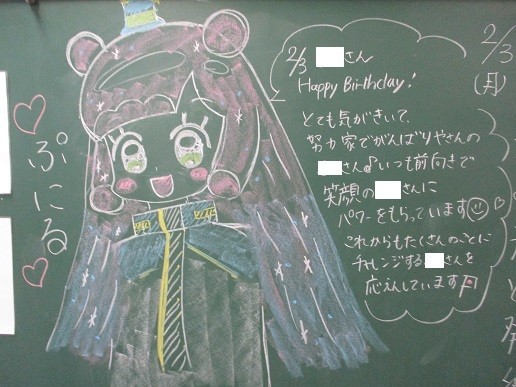 ぷにる
2/3 さん
Happy Birthday!
とても気がきいて、
努力家でがんばりやさんの
さん♪いつも前向きで
笑顔の さんに
パワーをもらっています
これからもたくさんのことに
チャレンジする さんを
応えんしています
2/3
(月)